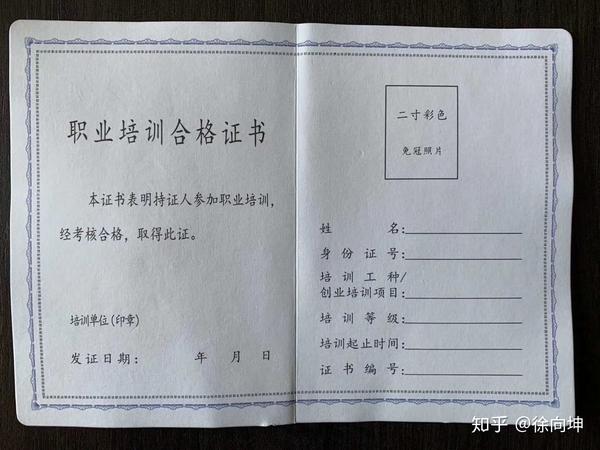 职业培训合格证书
本证书表明持证人参加职业培训，
经考核合格，取得此证。
培训单位(印章)
发证日期： 年 月 日
二寸彩色
免冠照片
姓 名：
身份证号：
培训工种/
创业培训项目：
培训等级：
培训起止时间：
证书编号：
知乎 @徐向坤